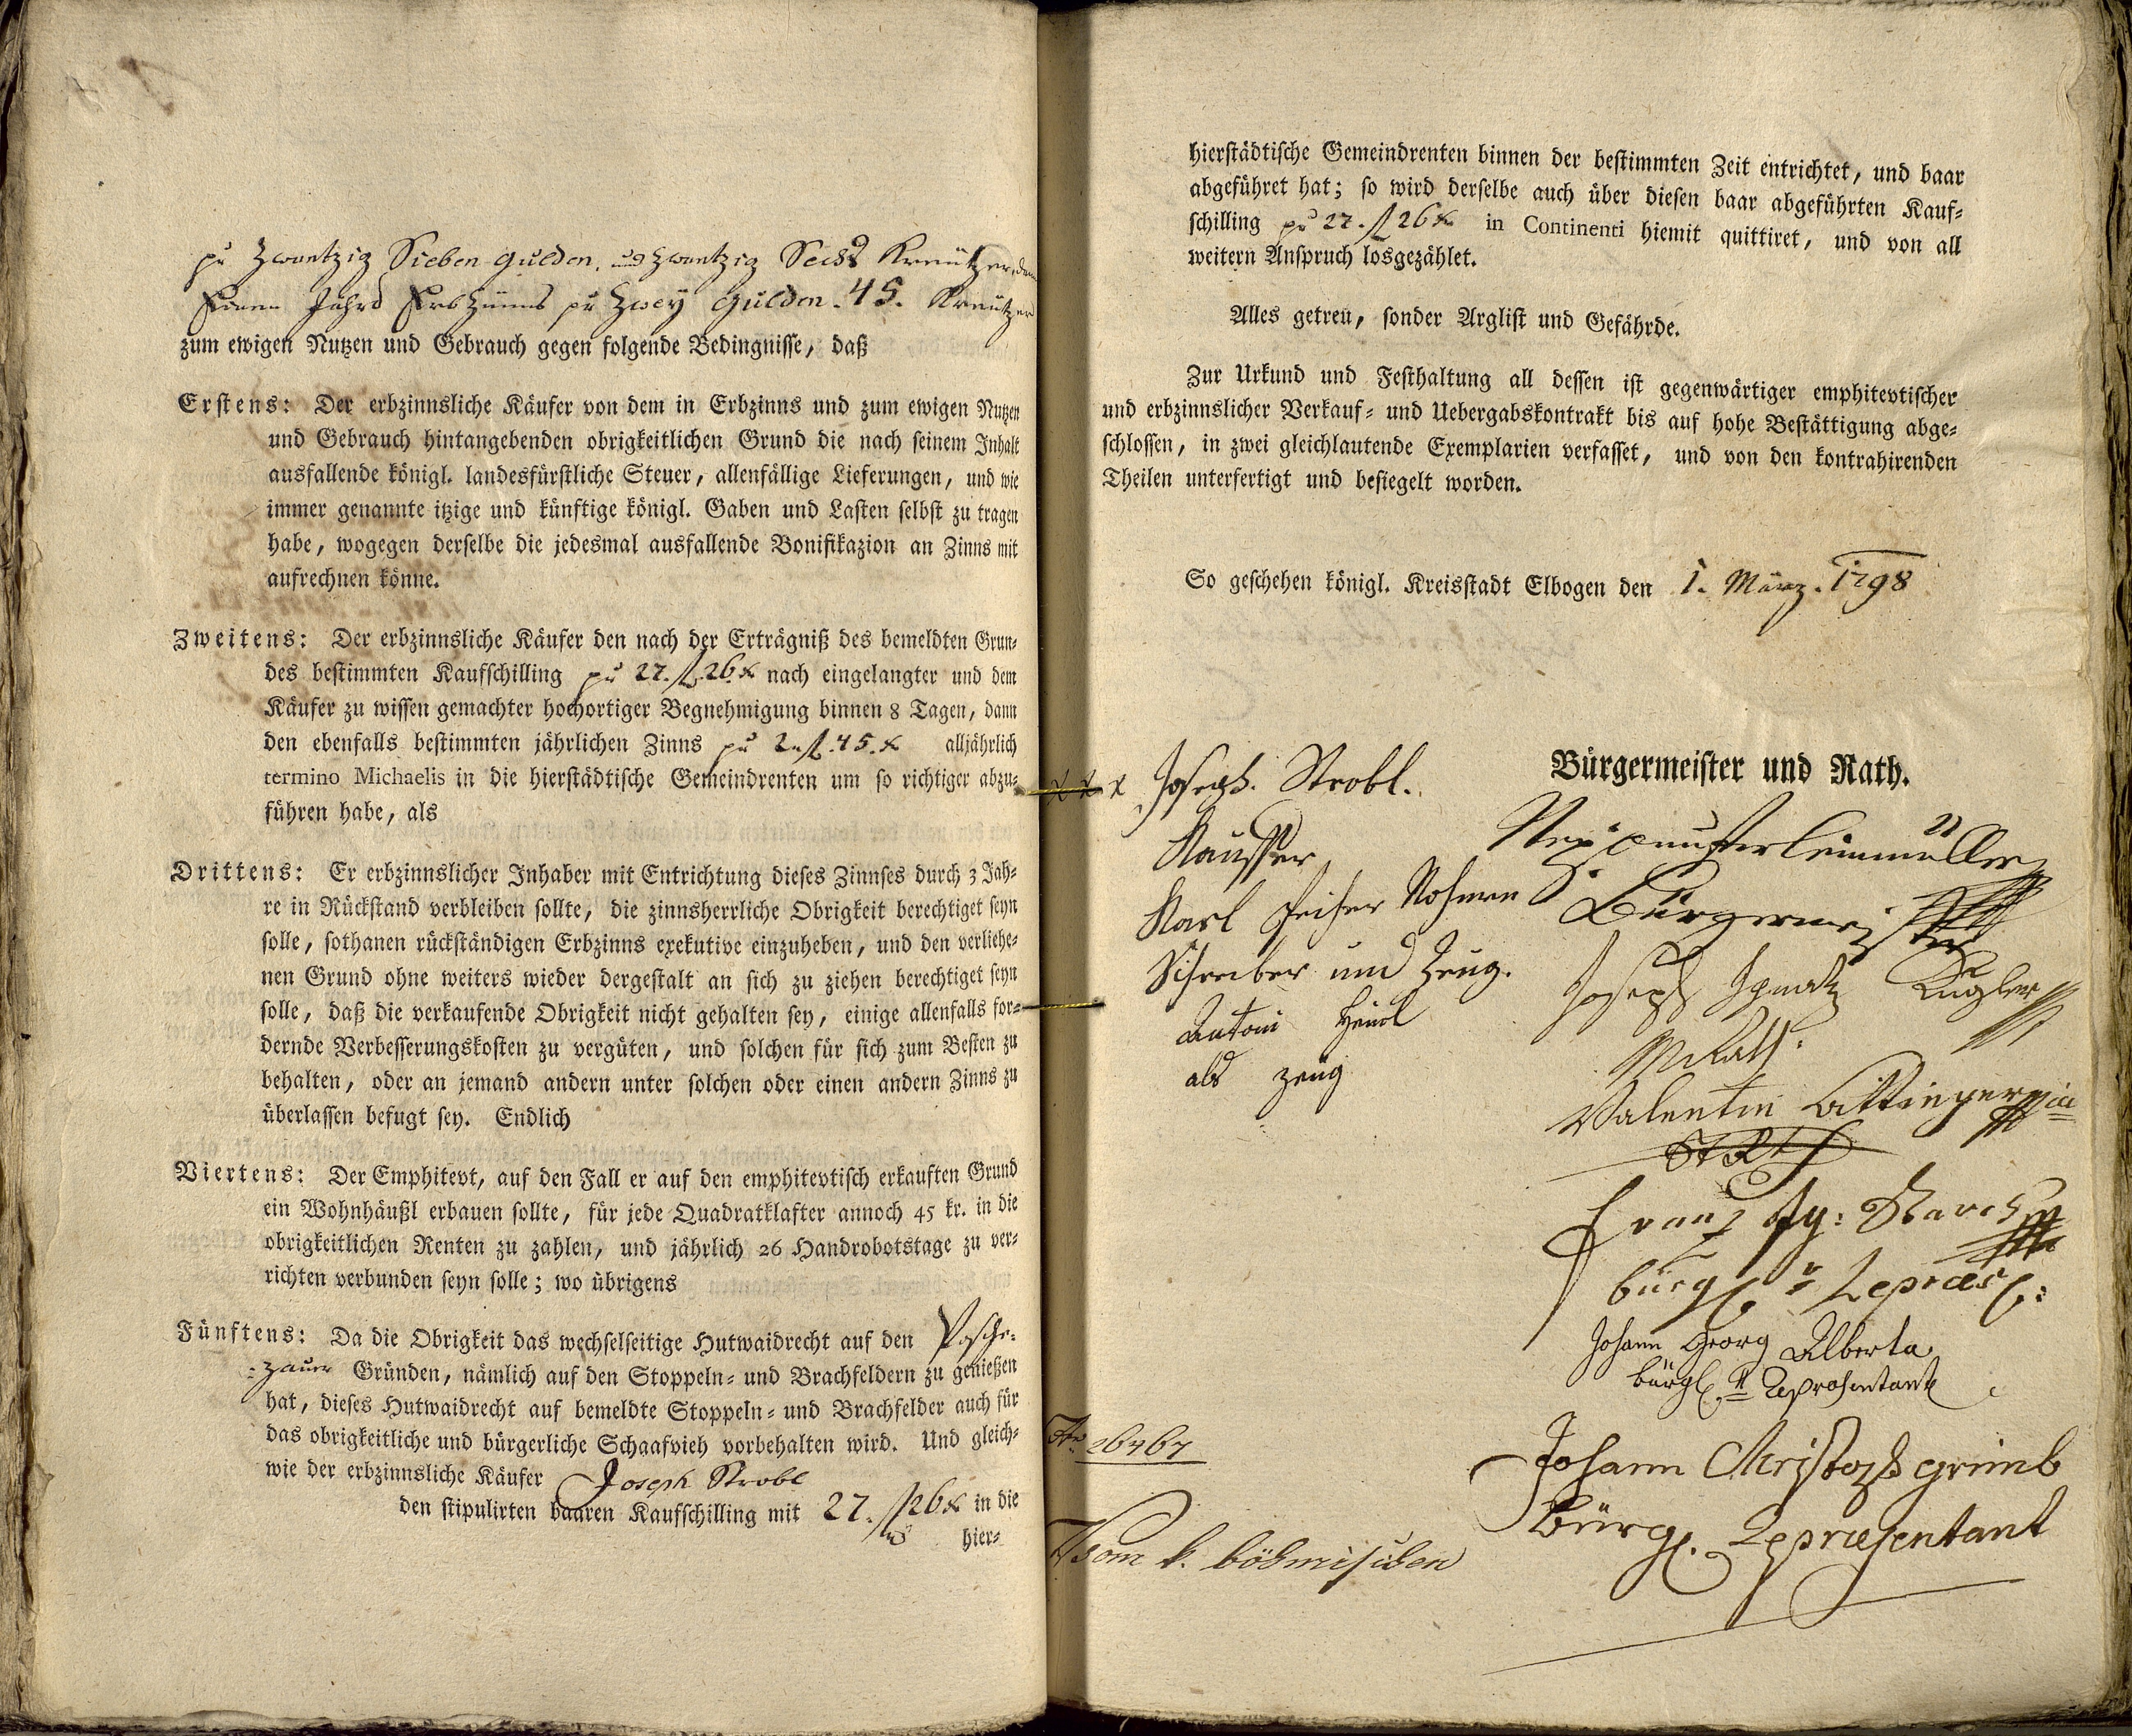 pr Zwantzig Sieben gulden, und Zwantzig Sechs Kreützer, dann
Jahrs Erbzinns pr Zwey gulden. 45. Kreutzer
zum ewigen Nutzen und Gebrauch gegen folgende Bedingnisse, daß
Erstens: Der erbzinnsliche Käufer von dem in Erbzinns und zum ewigen Nutzen
und Gebrauch hintangebenden obrigkeitlichen Grund die nach seinem Inhalt
ausfallende königl. landesfürstliche Steuer, allenfällige Lieferungen, und wie
immer genannte itzige und künftige königl. Gaben und Lasten selbst zu tragen
habe, wogegen derselbe die jedesmal ausfallende Bonifikazion an Zinns mit
aufrechnen könne.
Zweitens: Der erbzinnsliche Käufer den nach der Erträgniß des bemeldten Grun-
des bestimmten Kaufschilling pr 27. fl. 26 x nach eingelangter und dem
Käufer zu wissen gemachter hochortiger Begnehmigung binnen 8 Tagen, dann
den ebenfalls bestimmten jährlichen Zinns pr 2 fl. 45. x alljährlich
termino Michaelis in die hierstädtische Gemeindrenten um so richtiger abzu-
führen habe, als
Drittens: Er erbzinnslicher Inhaber mit Entrichtung dieses Zinnses durch 3 Jah-
re in Rückstand verbleiben sollte, die zinnsherrliche Obrigkeit berechtiget seyn
solle, sothanen rückständigen Erbzinns exekutive einzuheben, und den verliehe-
nen Grund ohne weiters wieder dergestalt an sich zu ziehen berechtiget seyn
solle, daß die verkaufende Obrigkeit nicht gehalten sey, einige allenfalls for-
dernde Verbesserungskosten zu vergüten, und solchen für sich zum Besten zu
behalten, oder an jemand andern unter solchen oder einen andern Zinns zu
überlassen befugt sey. Endlich
Viertens: Der Emphitevt, auf den Fall er auf den emphitevtisch erkauften Grund
ein Wohnhäußl erbauen sollte, für jede Quadratklafter annoch 45 kr. in die
obrigkeitlichen Renten zu zahlen, und jährlich 26 Handrobotstage zu ver-
richten verbunden seyn solle; wo übrigens
Fünftens: Da die Obrigkeit das wechselseitige Hutwaidrecht auf den Posche-
-zauer Gründen, nämlich auf den Stoppeln- und Brachfeldern zu genießen
hat, dieses Hutwaidrecht auf bemeldte Stoppeln- und Brachfelder auch für
das obrigkeitliche und bürgerliche Schaafvieh vorbehalten wird. Und gleich-
wie der erbzinnsliche Käufer Joseph Strobl
den stipulirten baaren Kaufschilling mit 27. fl 26 x in die
hier-
hierstädtische Gemeindrenten binnen der bestimmten Zeit entrichtet, und baar
abgeführet hat; so wird derselbe auch über diesen baar abgeführten Kauf-
schilling pr 27. fl 26 x in Continenti hiemit quittiret, und von all
weitern Anspruch losgezählet.
Alles getreu, sonder Arglist und Gefährde.
Zur Urkund und Festhaltung all dessen ist gegenwärtiger emphitevtischer
und erbzinnslicher Verkauf- und Uebergabskontrakt bis auf hohe Bestättigung abge-
schlossen, in zwei gleichlautende Exemplarien verfasset, und von den kontrahirenden
Theilen unterfertigt und besiegelt worden.
So geschehen königl. Kreisstadt Elbogen den 1. März. 1798
Bürgermeister und Rath.
x x x Joseph. Strobl.
Kauffer
Karl Nahmen
Schreiber und Zeug.
Antoni Heinl
als zeüg
Bürgermeister
Joseph Ignatz Kugler
MRath.
Valentin
Franz
bürgl.r Repraes:
Johann Georg Alberta
bürgl. Reprasentant
Johann Christoph grimb
Bürgl. Repraesentant
Nr. 26767
Vom k. böhmischen